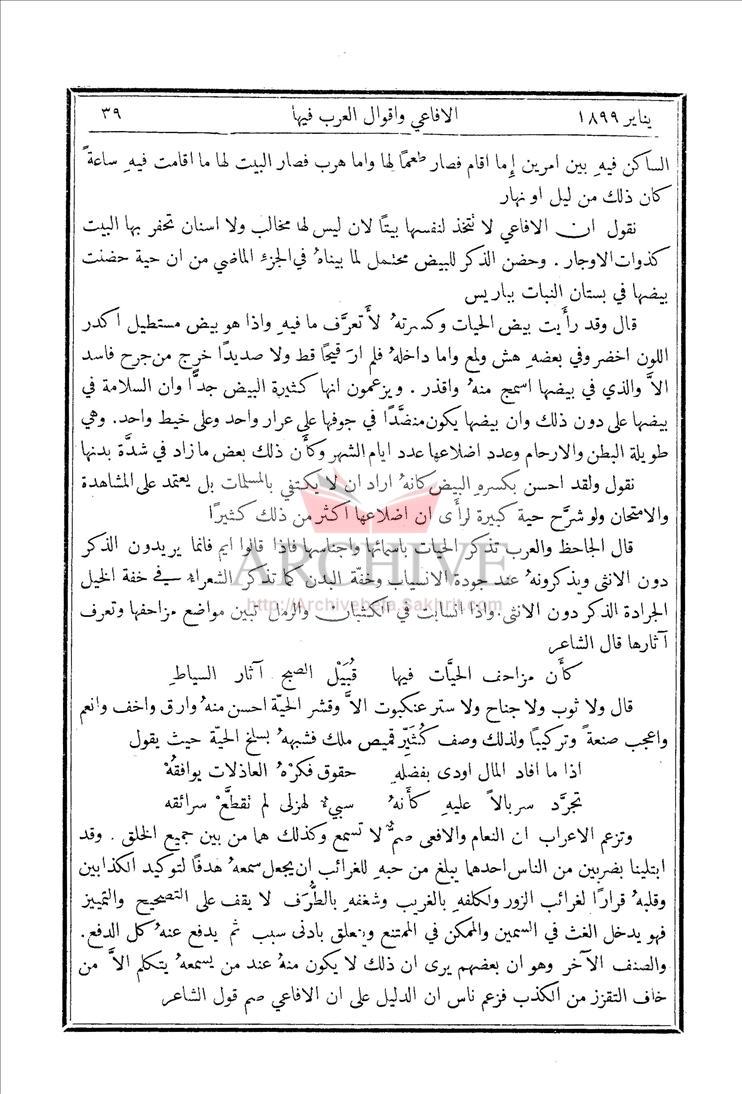 يناير ١٨٩٩ الافاعي واقوال العرب فيها ٣٩
الساكن فيهِ بين امرين إِما اقام فصار طعمًا لها واما هرب فصار البيت لها ما اقامت فيهِ ساعةً
كان ذلك من ليل او نهار
نقول ان الافاعي لا تتخذ لنفسها بيتًا لان ليس لها مخالب ولا اسنان تحفر بها البيت
كذوات الاوجار . وحضن الذكر للبيض محتمل لما بيناهُ في الجزء الماضي من ان حية حضنت
بيضها في بستان النبات بباريس
قال وقد رأَيت بيض الحيات وكسرتهُ لأَتعرَّف ما فيهِ واذا هو بيض مستطيل اكدر
اللون اخضر وفي بعضهِ هش ولمع واما داخلهُ فلم ارَ قيحًا قط ولا صديدًا خرج من جرح فاسد
الاَّ والذي في بيضها اسمج منهُ واقذر . ويزعمون انها كثيرة البيض جدًّا وان السلامة في
بيضها على دون ذلك وان بيضها يكون منضَّدًا في جوفها على عرار واحد وعلى خيط واحد. وهي
طويلة البطن والارحام وعدد اضلاعها عدد ايام الشهر وكأَن ذلك بعض ما زاد في شدَّة بدنها
نقول ولقد احسن بكسرهِ البيض كانهُ اراد ان لا يكتفي بالمسلمات بل يعتمد على المشاهدة
والامتحان ولو شرَّح حية كبيرة لرأَى ان اضلاعها اكثر من ذلك كثيرًا
قال الجاحظ والعرب تذكر الحيات باسمائها واجناسها فاذا قالوا ايم فانما يريدون الذكر
دون الانثى ويذكرونهُ عند جودة الانسياب وخفَّة البدن كما تذكر الشعراء في خفة الخيل
الجرادة الذكر دون الانثى. واذا انسابت في الكثبان والرمل تبين مواضع مزاحفها وتعرف
آثارها قال الشاعر
كأَن مزاحف الحيَّات فيها قُبَيْل الصبح آثار السياطِ
قال ولا ثوب ولا جناح ولا ستر عنكبوت الاَّ وقشر الحيَّة احسن منهُ وارق واخف وانعم
واعجب صنعةً وتركيبًا ولذلك وصف كُثَيِّر قميص ملك فشبههُ بسلخ الحيَّة حيث يقول
اذا ما افاد المال اودى بفضلهِ حقوق فكرْهُ العاذلات يوافقُهْ
تجرَّد سربالاً عليهِ كأَنهُ سبيءُ لهزلى لم تقطَّعْ سرائقه
وتزعم الاعراب ان النعام والافعى صمٌّ لا تسمع وكذلك هما من بين جميع الخلق . وقد
ابتلينا بضربين من الناس احدهما يبلغ من حبهِ للغرائب ان يجعل سمعهُ هدفًا لتوكيد الكذابين
وقلبهُ قرارًا لغرائب الزور ولكلفهِ بالغريب وشغفهِ بالطُّرَف لا يقف على التصحيح والتمييز
فهو يدخل الغث في السمين والممكن في الممتنع ويتعلق بادنى سبب ثم يدفع عنهُ كل الدفع.
والصنف الآخر وهو ان بعضهم يرى ان ذلك لا يكون منهُ عند من يسمعهُ يتكلم الاَّ من
خاف التقزز من الكذب فزعم ناس ان الدليل على ان الافاعي صم قول الشاعر
ARCHIVE
http://Archivebeta.Sakhrit.com